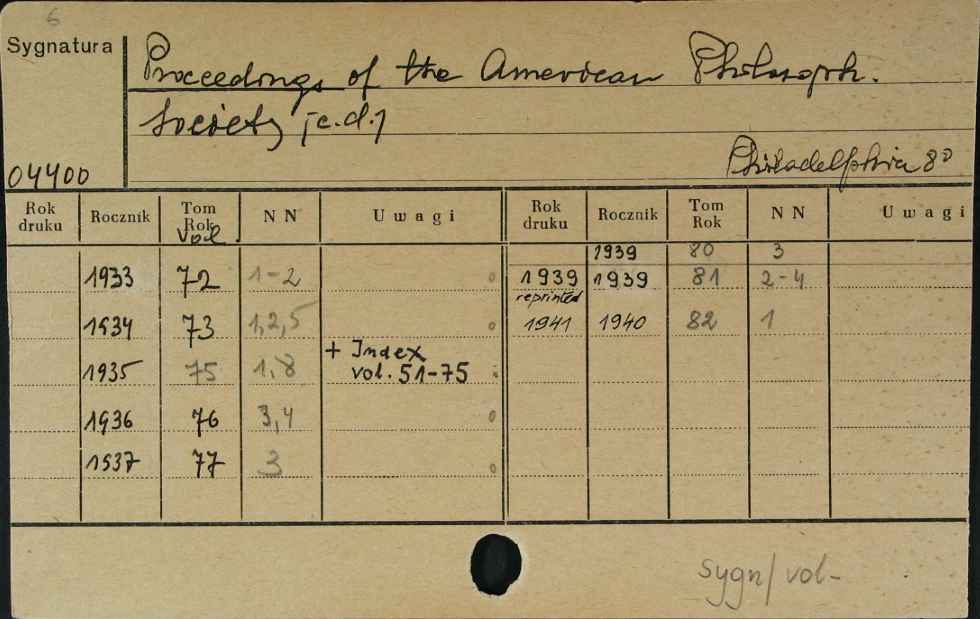 6
Sygnatura
Proceedings of the American Philosoph.
Society [c.d.]
Philadelphia 8°
04400
Rok druku Rocznik Tom Rok vol. NN Uwagi Rok druku Rocznik Tom Rok NN Uwagi
1939 80 3
1933 72 1-2 1939 1939 81 2-4
reprinted
1934 73 1,2,5 1941 1940 82 1
+ Index
1935 75 1,8 vol. 51-75
1936 76 3,4
1937 77 3
sygn/ vol-